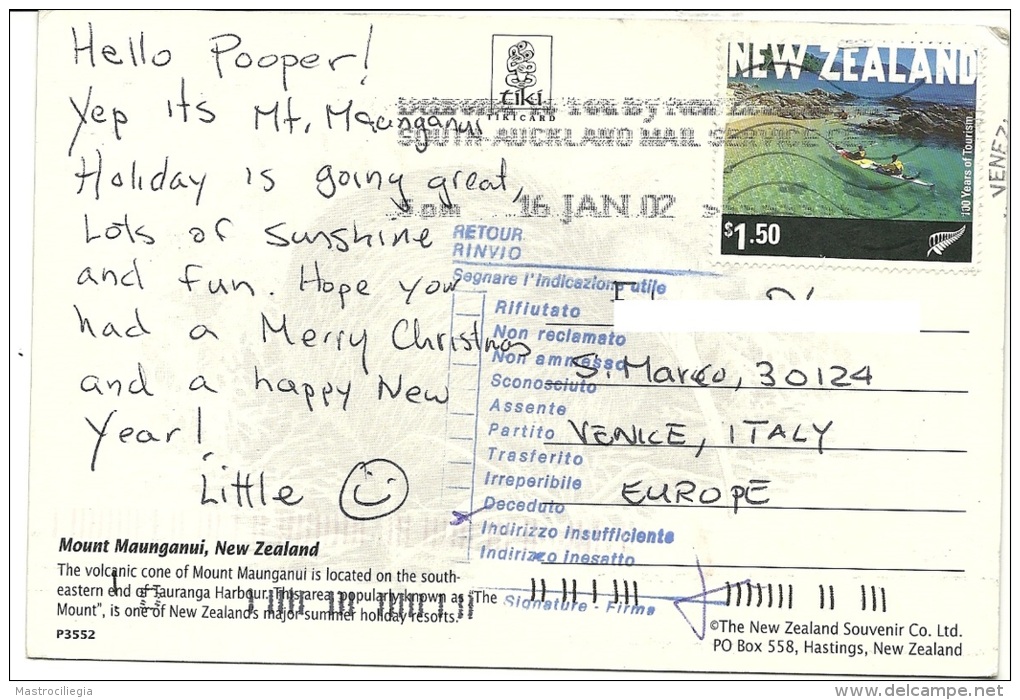 Hello Pooper!
Yep its Mt. Maunganui
Holiday is going great,
Lots of sunshine
and fun. Hope you
had a Merry Christmas
and a happy New
Year!
Little
tiki
TIKICARD
SOUTH AUCKLAND MAIL SERVICE
5 pm 16 JAN 02
NEW ZEALAND
100 Years of Tourism
$1.50
VENEZ
RETOUR
RINVIO
Segnare l'indicazione utile
Rifiutato
Non reclamato
Non ammesso
Sconosciuto
Assente
Partito
Trasferito
Irreperibile
Deceduto
Indirizzo insufficiente
Indirizzo inesatto
Signature - Firma
S. Marco, 30124
VENICE, ITALY
EUROPE
Mount Maunganui, New Zealand
The volcanic cone of Mount Maunganui is located on the south-
eastern end of Tauranga Harbour. This area, popularly known as "The
Mount", is one of New Zealand's major summer holiday resorts.
P3552
©The New Zealand Souvenir Co. Ltd.
PO Box 558, Hastings, New Zealand
Mastrociliegia
delcampe.net